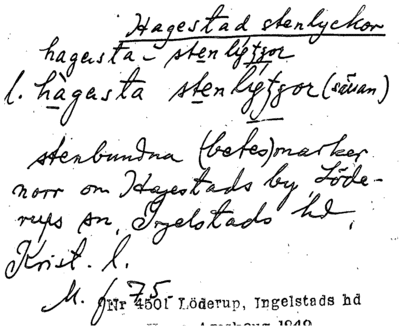 Hagestad stenlyckor
hàgasta - stenlýtʒor
l. hàgasta stenlýtʒor (säsan)
stenbundna (betes)marker
norr om Hagestads by, Löde-
rups sn, Ingelstads hd,
Krist. l.
M. f. 75.
Nr 4501 Löderup, Ingelstads hd